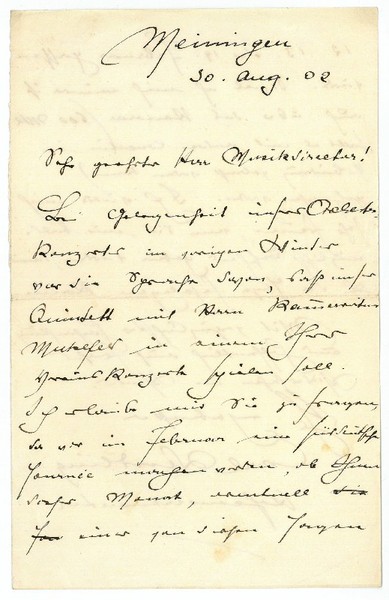 Meiningen
30. Aug. 02
Sehr geehrter Herr Musikdirector!
Bei Gelegenheit unseres Orchester-
Konzertes im vorigen Winter
war die Sprache davon, daß unser
Quintett mit Herrn Kammervirtuos
Mühlfeld in einem Ihrer
Vereinskonzerte spielen soll.
Ich erlaube mir Sie zu fragen,
da wir im Februar eine süddeutsche
Tournée machen werden, ob Ihnen
dieser Monat, eventuell die
einer von diesen Tagen